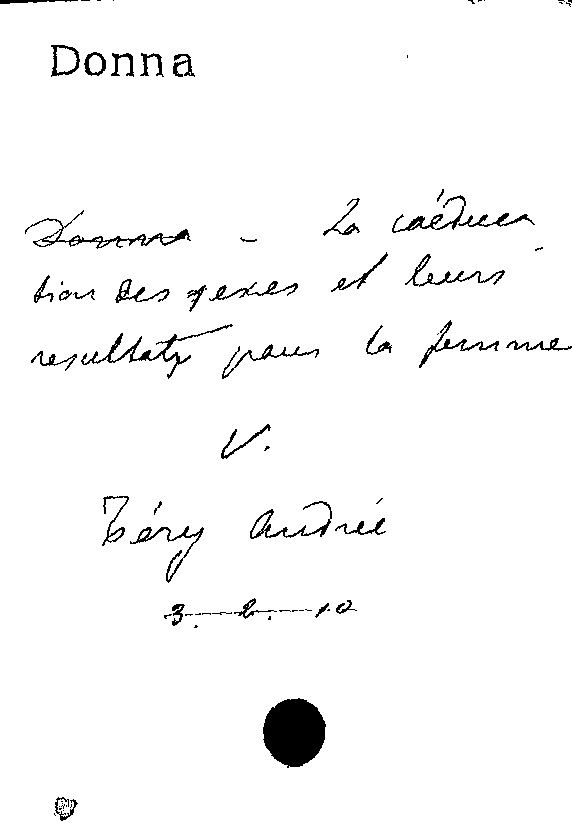 Donna
Donna - La coéduca
tion des sexes et leurs
resultats pour la femme
V.
Téry Andrée
3. 2. 10